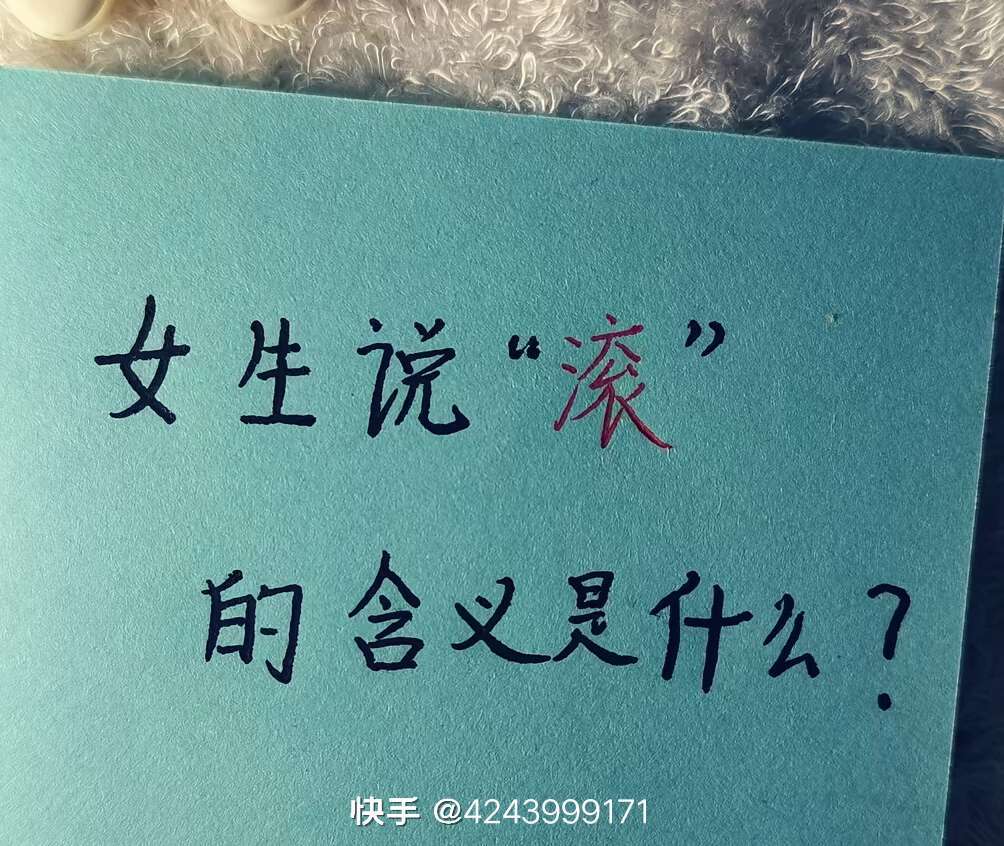 女生说“滚”
的含义是什么？
快手 @4243999171